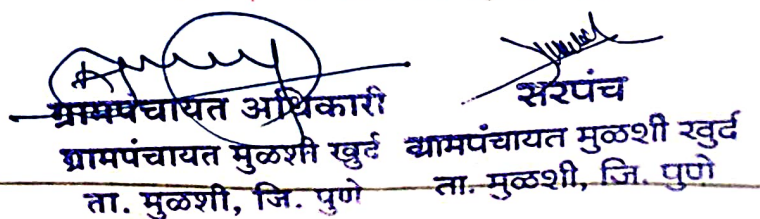 ग्रामपंचायत अधिकारी
ग्रामपंचायत मुळशी खुर्द
ता. मुळशी, जि. पुणे
सरपंच
ग्रामपंचायत मुळशी खुर्द
ता. मुळशी, जि. पुणे